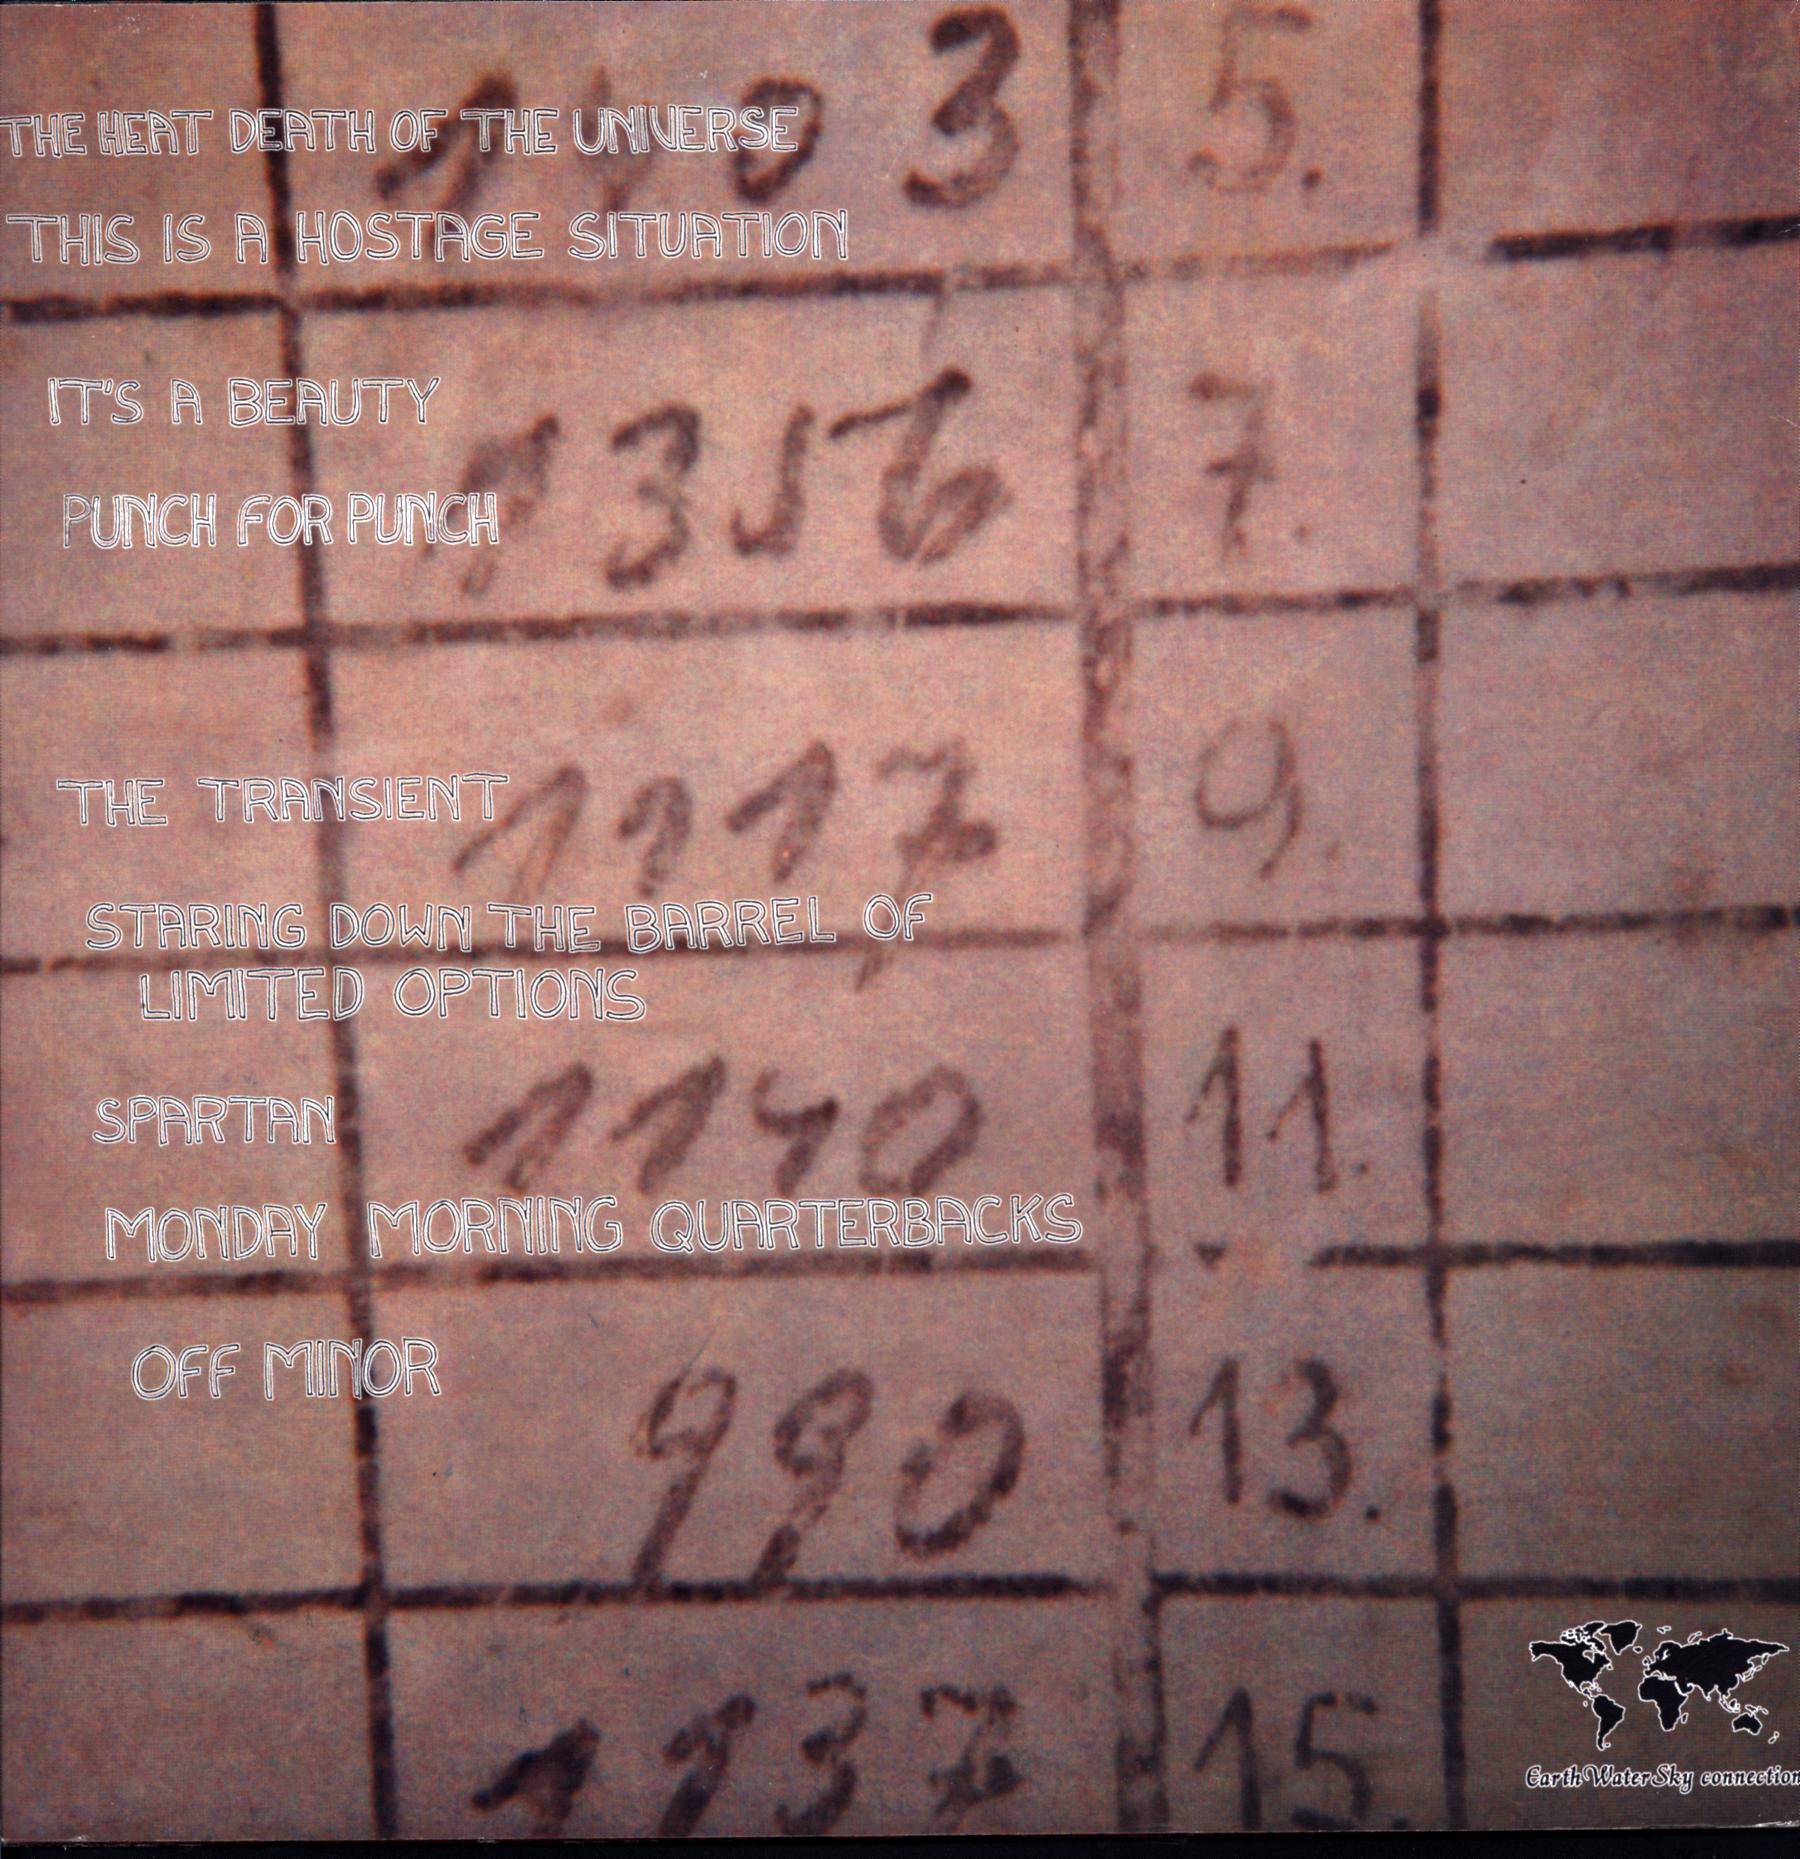 THE HEAT DEATH OF THE UNIVERSE
5.
THIS IS A HOSTAGE SITUATION
IT'S A BEAUTY
7.
PUNCH FOR PUNCH
THE TRANSIENT
1117 9.
STARING DOWN THE BARREL OF
LIMITED OPTIONS
SPARTAN
1140 11.
MONDAY MORNING QUARTERBACKS
OFF MINOR
990 13.
1137 15.
Earth Water Sky connection